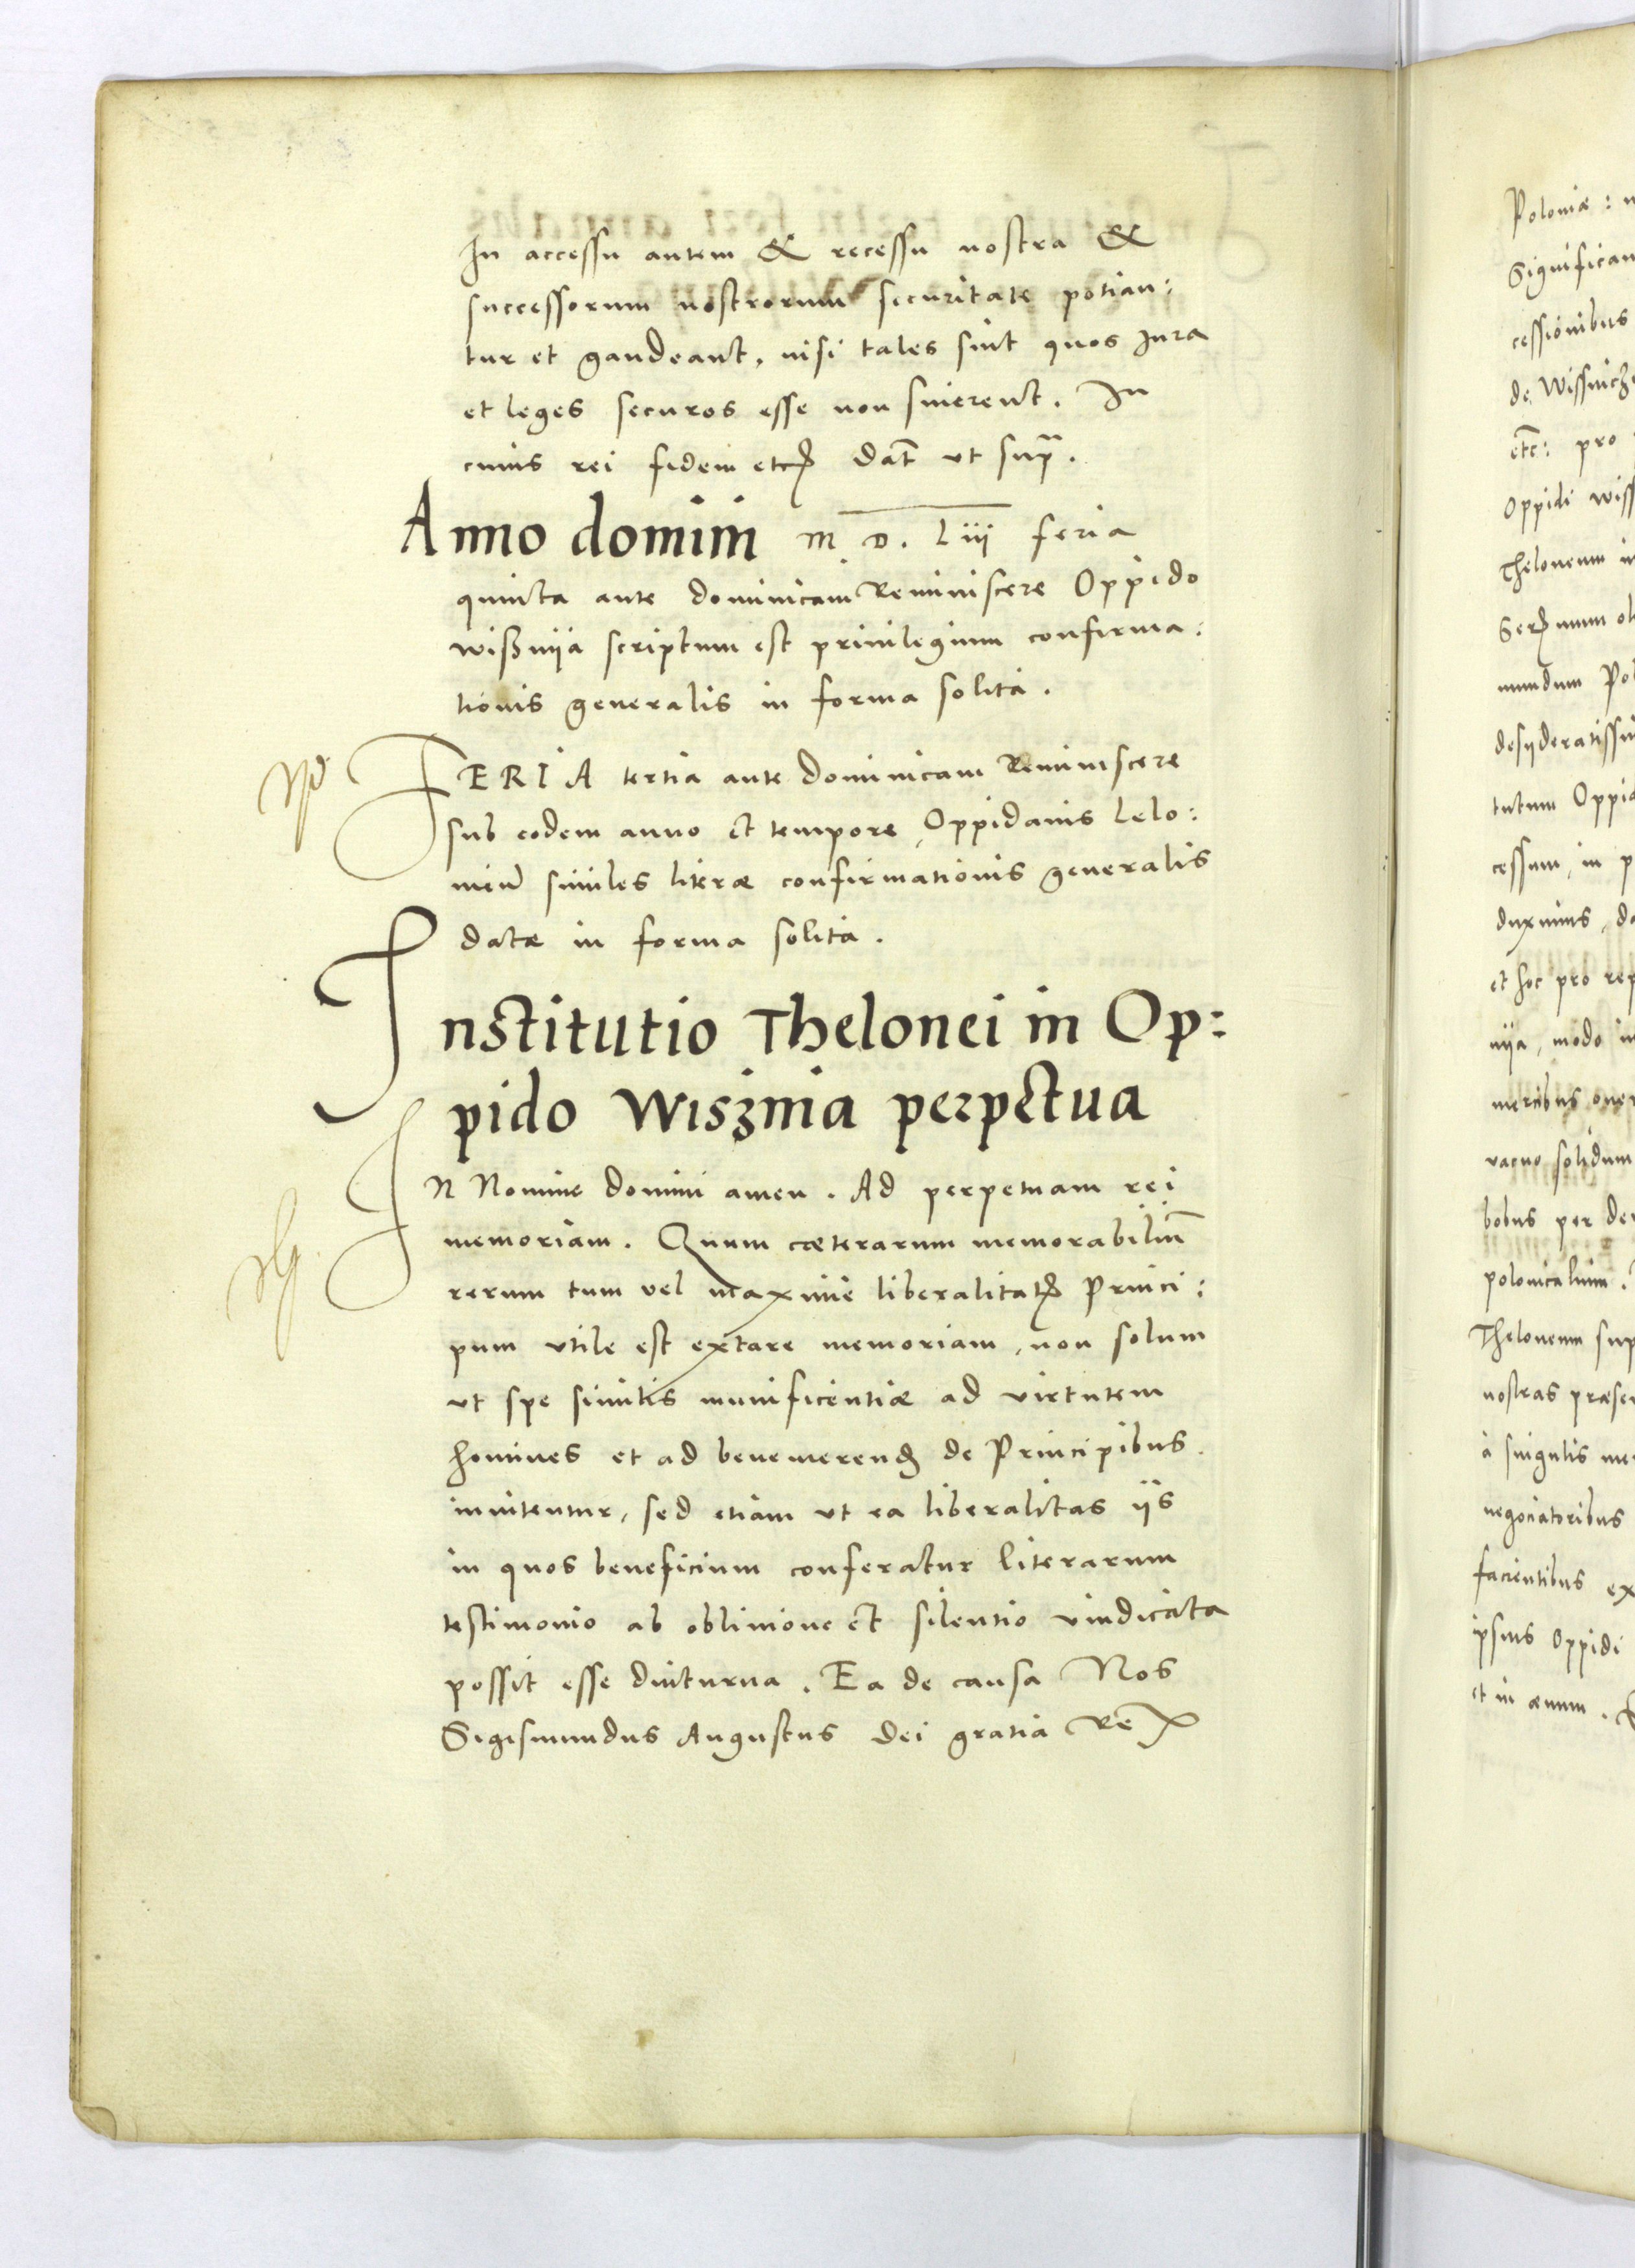 In accessu autem & recessu nostra &
successorum nostrorum securitate potian:
tur et gaudeant, nisi tales sint quos Iura
et leges securos esse non sinerent. In
cuius rei fidem etc. Dat ut supra.
Anno domini M D. Liii feria
quinta ante dominicam Reminiscere Oppido
wißnija scriptum est privilegium confirma:
tionis generalis in forma solita.
FERIA tertia ante Dominicam Reminiscere
sub eodem anno et tempore, Oppidanis Lelo:
nien similes literæ confirmationis generalis
datæ in forma solita.
Institutio Thelonei in Op:
pido Wisznia perpetua
IN Nomine domini amen. Ad perpetuam rei
memoriam. Quum cæterarum memorabilium
rerum tum vel maxime liberalitatis Princi:
pum utile est extare memoriam, non solum
ut spe similis munificentiæ ad virtutem
homines et ad benemerend de Principibus
invitentur, sed etiam ut ea liberalitas ijs
in quos beneficium conferatur literarum
testimonio ab oblivione et silentio vindicata
possit esse diuturna. Ea de causa Nos
Sigismundus Augustus dei gratia Rex
Poloniæ:
Significam
cessionibus
de Wissnicze
etc: pro
Oppidi wiss
Theloneum in
mundum Pol
desyderatissi
tutum Oppid
cessum, in p
duximus, da
et hoc pro rep
nija, modo in
mercibus oner
vacuo solidum
bobus per de
polonicalium.
Theloneum sup
nostras præsen
à singulis mer
negociatoribus
facientibus ex
ipsius Oppidi
et in ævum.